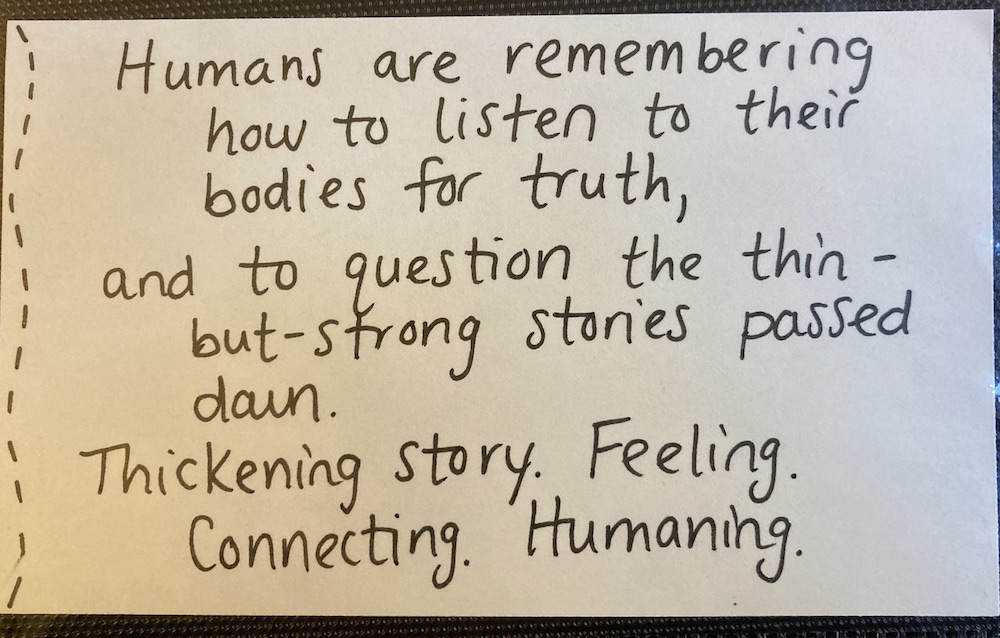 Humans are remembering
how to listen to their
bodies for truth,
and to question the thin-
but-strong stories passed
down.
Thickening story. Feeling.
Connecting. Humaning.